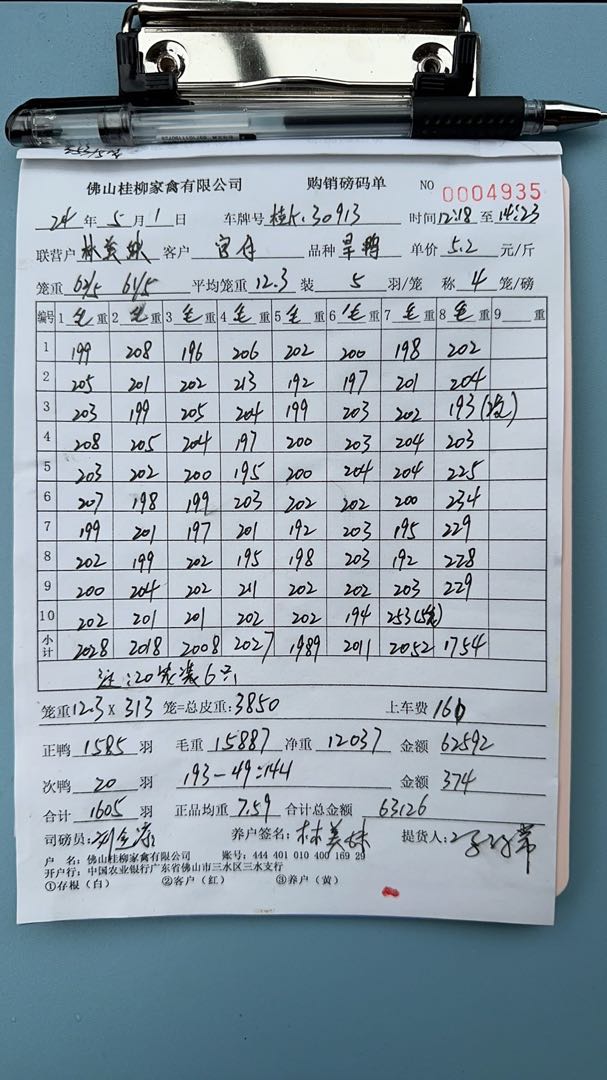 佛山桂柳家禽有限公司 购销磅码单 NO 0004935
24年5月1日 车牌号 桂K.30913 时间12:18至14:23
联营户 林美妹 客户 品种 旱鸭 单价 5.2 元/斤
笼重 62/5 61/5 平均笼重12.3 装 5 羽/笼 称 4 笼/磅
编号 1毛重 2毛重 3毛重 4毛重 5毛重 6毛重 7毛重 8毛重 9 重
1 199 208 196 206 202 200 198 202
2 205 201 202 213 192 197 201 204
3 203 199 205 204 199 203 202 193(次)
4 208 205 204 197 200 203 204 203
5 203 202 200 195 200 204 204 225
6 207 198 199 203 202 202 200 234
7 199 201 197 201 192 203 195 229
8 202 199 202 195 198 203 192 228
9 200 204 202 211 202 202 203 229
10 202 201 201 202 202 194 253(5笼)
小计 2028 2018 2008 2027 1989 2011 2052 1754
注:20笼装6只
笼重12.3 X 313 笼=总皮重:3850 上车费 160
正鸭 1585 羽 毛重 15887 净重 12037 金额 62592
次鸭 20 羽 193-49=144 金额 374
合计 1605 羽 正品均重 7.59 合计总金额 63126
司磅员: 养户签名: 林美妹 提货人:
户 名: 佛山桂柳家禽有限公司 账号: 444 401 010 400 169 29
开户行: 中国农业银行广东省佛山市三水区三水支行
①存根（白） ②客户（红） ③养户（黄）